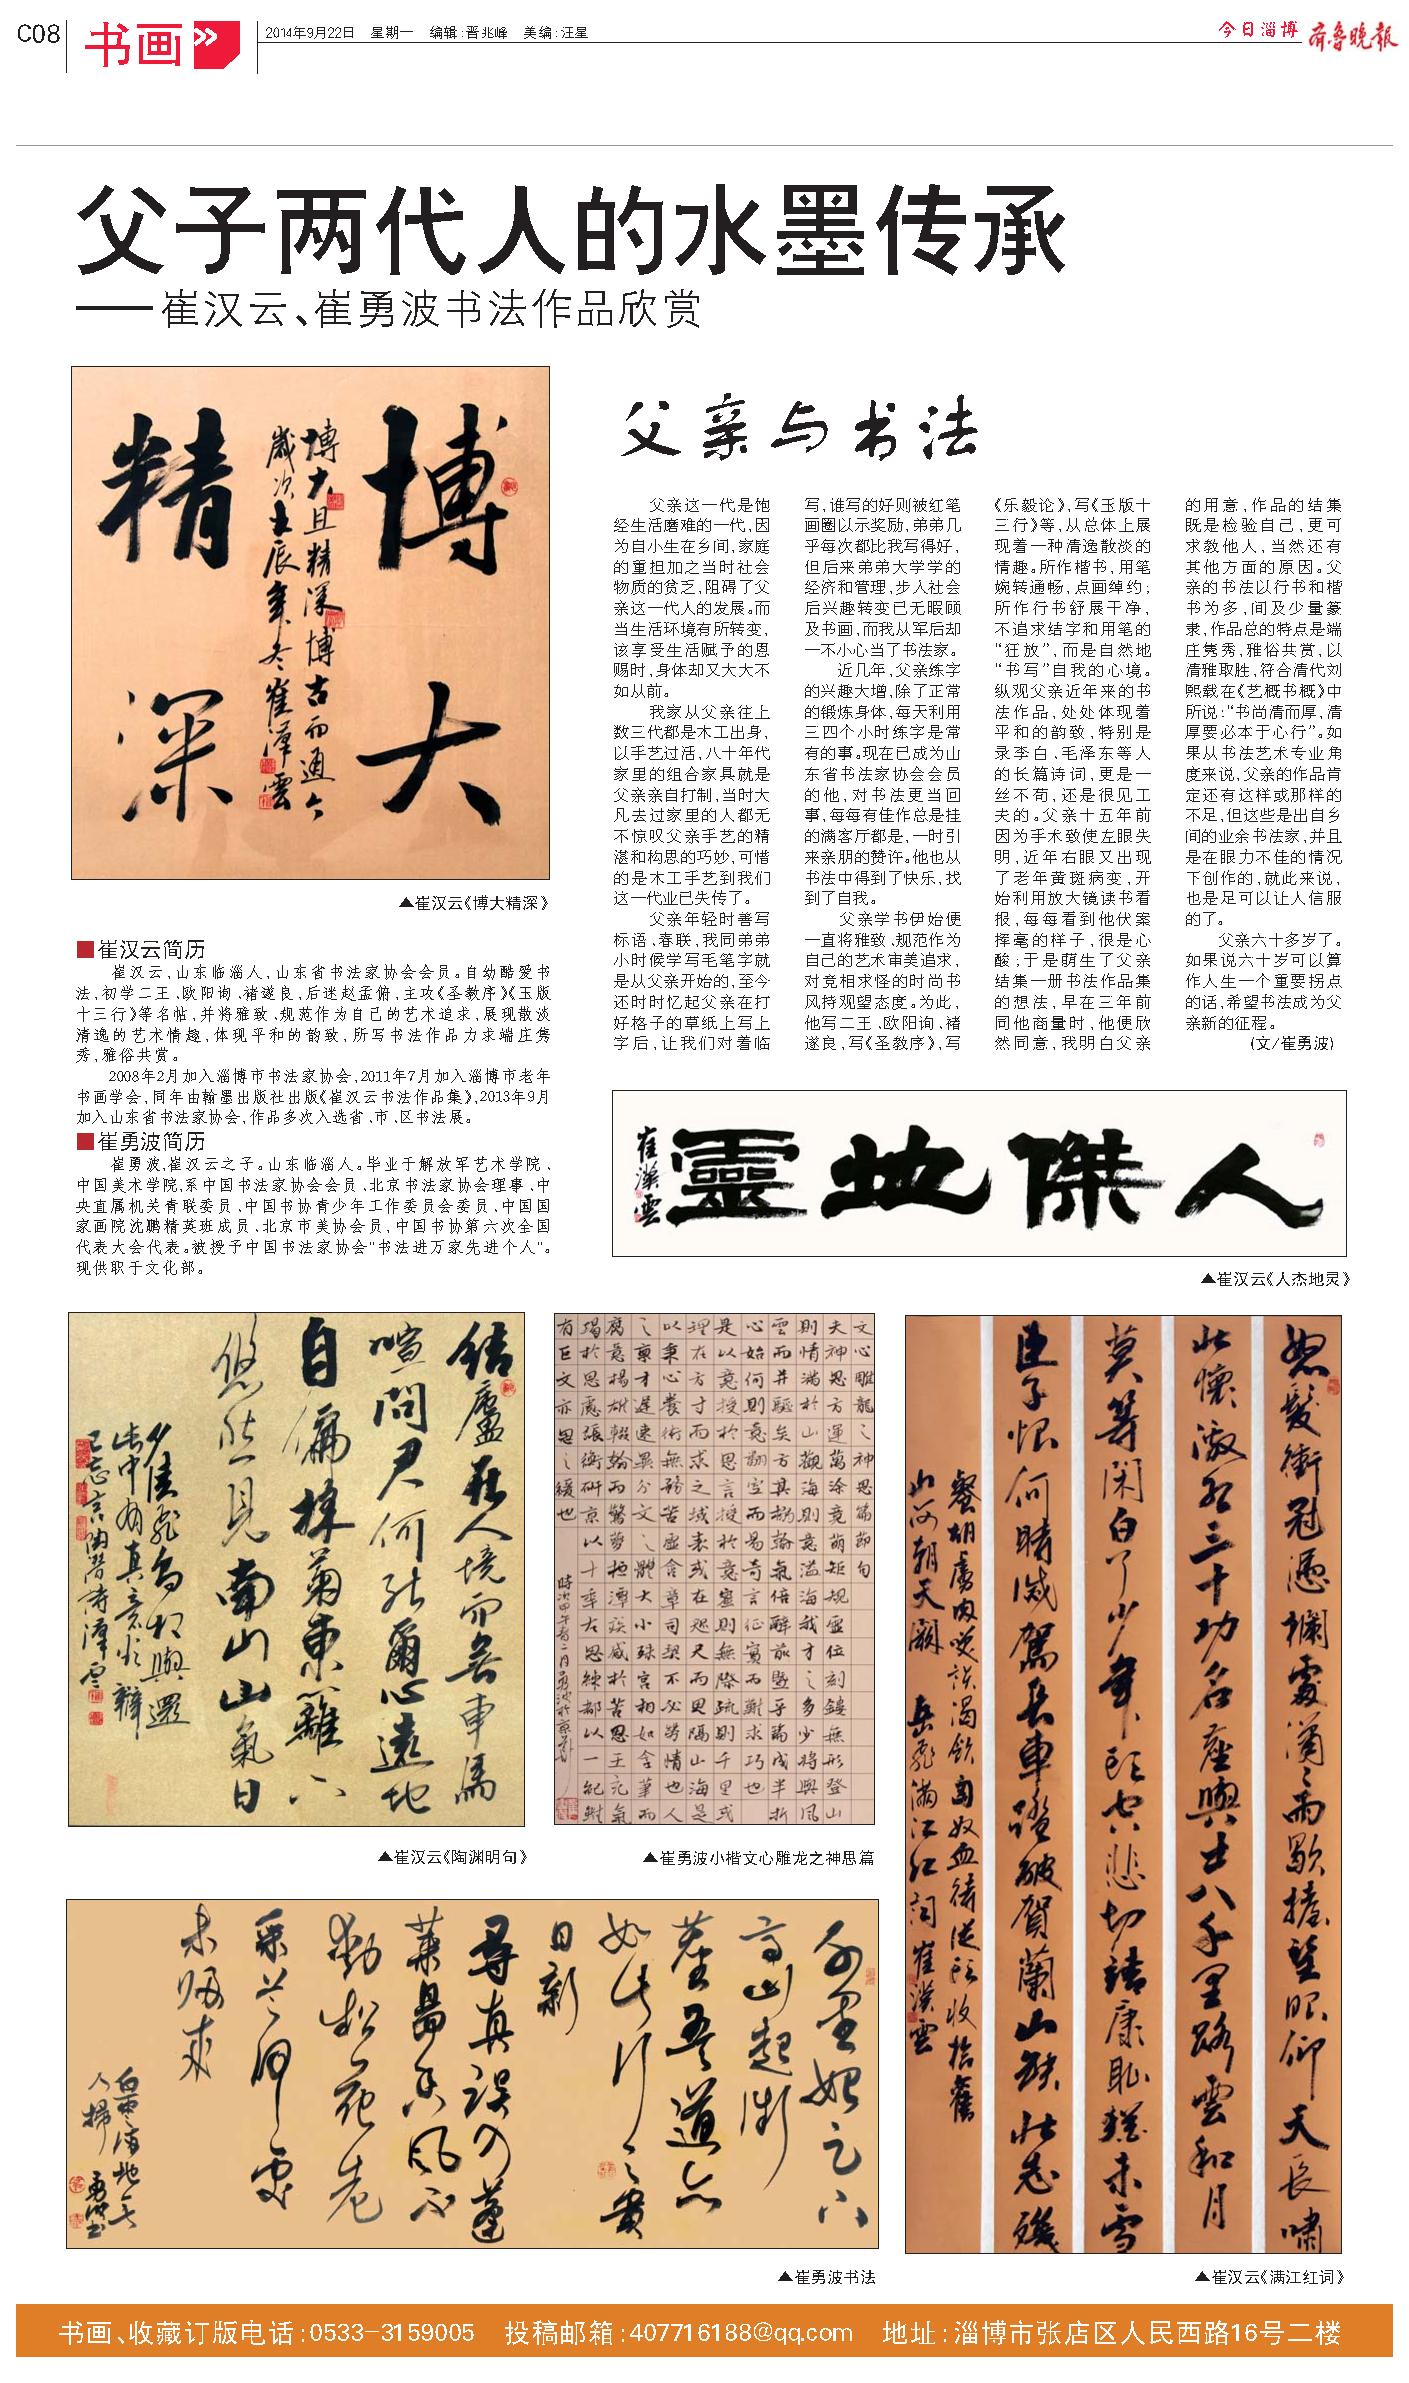 C08
书画
2014年9月22日 星期一 编辑:晋兆峰 美编:汪星
今日淄博 齐鲁晚报
父子两代人的水墨传承
——崔汉云、崔勇波书法作品欣赏
博大
精深
博大且精深博古而通今
岁次壬辰年冬崔漢雲
▲崔汉云《博大精深》
■崔汉云简历
崔汉云,山东临淄人,山东省书法家协会会员。自幼酷爱书
法,初学二王、欧阳询、褚遂良,后迷赵孟俯,主攻《圣教序》《玉版
十三行》等名帖,并将雅致、规范作为自己的艺术追求,展现散淡
清逸的艺术情趣,体现平和的韵致,所写书法作品力求端庄隽
秀,雅俗共赏。
2008年2月加入淄博市书法家协会,2011年7月加入淄博市老年
书画学会,同年由翰墨出版社出版《崔汉云书法作品集》,2013年9月
加入山东省书法家协会,作品多次入选省、市、区书法展。
■崔勇波简历
崔勇波,崔汉云之子。山东临淄人。毕业于解放军艺术学院、
中国美术学院,系中国书法家协会会员、北京书法家协会理事、中
央直属机关青联委员、中国书协青少年工作委员会委员、中国国
家画院沈鹏精英班成员、北京市美协会员,中国书协第六次全国
代表大会代表。被授予中国书法家协会“书法进万家先进个人”。
现供职于文化部。
父亲与书法
父亲这一代是饱
经生活磨难的一代,因
为自小生在乡间,家庭
的重担加之当时社会
物质的贫乏,阻碍了父
亲这一代人的发展。而
当生活环境有所转变,
该享受生活赋予的恩
赐时,身体却又大大不
如从前。
我家从父亲往上
数三代都是木工出身,
以手艺过活,八十年代
家里的组合家具就是
父亲亲自打制,当时大
凡去过家里的人都无
不惊叹父亲手艺的精
湛和构思的巧妙,可惜
的是木工手艺到我们
这一代业已失传了。
父亲年轻时善写
标语、春联,我同弟弟
小时候学写毛笔字就
是从父亲开始的,至今
还时时忆起父亲在打
好格子的草纸上写上
字后,让我们对着临
写,谁写的好则被红笔
画圈以示奖励,弟弟几
乎每次都比我写得好,
但后来弟弟大学学的
经济和管理,步入社会
后兴趣转变已无暇顾
及书画,而我从军后却
一不小心当了书法家。
近几年,父亲练字
的兴趣大增,除了正常
的锻炼身体,每天利用
三四个小时练字是常
有的事。现在已成为山
东省书法家协会会员
的他,对书法更当回
事,每每有佳作总是挂
的满客厅都是,一时引
来亲朋的赞许。他也从
书法中得到了快乐,找
到了自我。
父亲学书伊始便
一直将雅致、规范作为
自己的艺术审美追求,
对竞相求怪的时尚书
风持观望态度。为此,
他写二王、欧阳询、褚
遂良,写《圣教序》,写
《乐毅论》,写《玉版十
三行》等,从总体上展
现着一种清逸散淡的
情趣。所作楷书,用笔
婉转通畅,点画绰约;
所作行书舒展干净,
不追求结字和用笔的
“狂放”,而是自然地
“书写”自我的心境。
纵观父亲近年来的书
法作品,处处体现着
平和的韵致,特别是
录李白、毛泽东等人
的长篇诗词,更是一
丝不苟,还是很见工
夫的。父亲十五年前
因为手术致使左眼失
明,近年右眼又出现
了老年黄斑病变,开
始利用放大镜读书看
报,每每看到他伏案
挥毫的样子,很是心
酸;于是萌生了父亲
结集一册书法作品集
的想法,早在三年前
同他商量时,他便欣
然同意,我明白父亲
的用意,作品的结集
既是检验自己,更可
求教他人,当然还有
其他方面的原因。父
亲的书法以行书和楷
书为多,间及少量篆
隶,作品总的特点是端
庄隽秀,雅俗共赏,以
清雅取胜,符合清代刘
熙载在《艺概书概》中
所说:“书尚清而厚,清
厚要必本于心行”。如
果从书法艺术专业角
度来说,父亲的作品肯
定还有这样或那样的
不足,但这些是出自乡
间的业余书法家,并且
是在眼力不佳的情况
下创作的,就此来说,
也是足可以让人信服
的了。
父亲六十多岁了。
如果说六十岁可以算
作人生一个重要拐点
的话,希望书法成为父
亲新的征程。
(文/崔勇波)
人傑地靈
崔漢雲
▲崔汉云《人杰地灵》
结廬在人境而無車馬
喧問君何能爾心遠地
自偏採菊東籬下
悠然見南山山氣日
夕佳飛鳥相與還
此中有真意欲辯
已忘言陶淵明詩漢雲
▲崔汉云《陶渊明句》
▲崔勇波小楷文心雕龙之神思篇
怒髮衝冠憑欄處瀟瀟雨歇抬望眼仰天長嘯
壯懷激烈三十功名塵與土八千里路雲和月
莫等閑白了少年頭空悲切靖康恥猶未雪
臣子恨何時滅駕長車踏破賀蘭山缺壯志飢
餐胡虜肉笑談渴飲匈奴血待從頭收拾舊
山河朝天闕 岳飛滿江红詞 崔漢雲
▲崔汉云《满江红词》
千里始足下
高山起微
塵吾道亦
如此行之貴
日新
▲崔勇波书法
书画、收藏订版电话:0533-3159005 投稿邮箱:407716188@qq.com 地址:淄博市张店区人民西路16号二楼